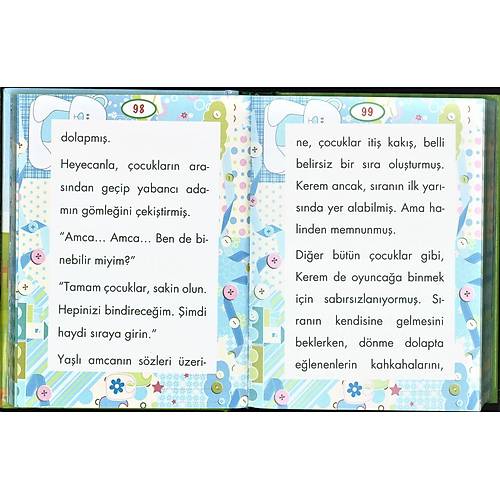 98
dolapmış.
Heyecanla, çocukların ara-
sından geçip yabancı ada-
mın gömleğini çekiştirmiş.
"Amca... Amca... Ben de bi-
nebilir miyim?"
"Tamam çocuklar, sakin olun.
Hepinizi bindireceğim. Şimdi
haydi sıraya girin."
Yaşlı amcanın sözleri üzeri-
99
ne, çocuklar itiş kakış, belli
belirsiz bir sıra oluşturmuş.
Kerem ancak, sıranın ilk yarı-
sında yer alabilmiş. Ama ha-
linden memnunmuş.
Diğer bütün çocuklar gibi,
Kerem de oyuncağa binmek
için sabırsızlanıyormuş. Sı-
ranın kendisine gelmesini
beklerken, dönme dolapta
eğlenenlerin kahkahalarını,